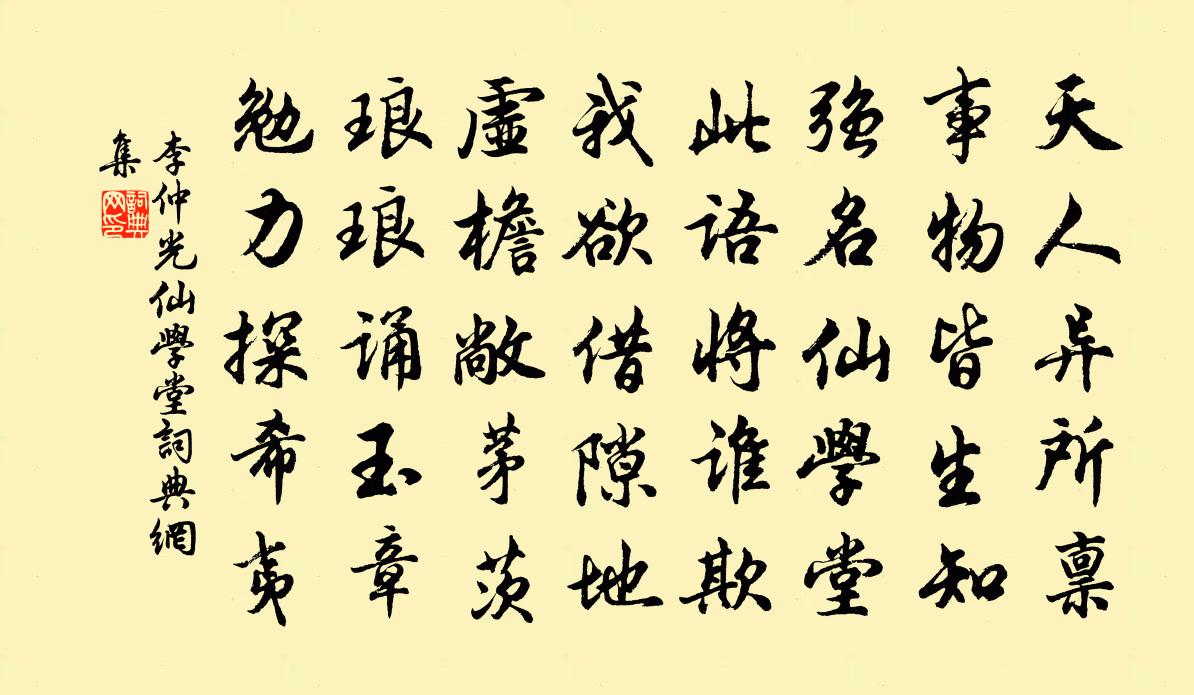 天人异所禀
事物皆生知
強名仙學堂
此语將谁欺
我欲借隙地
虛檐敞茅茨
琅琅诵玉章
勉力探希夷
李仲光仙學堂詞典網
集
詞典网印